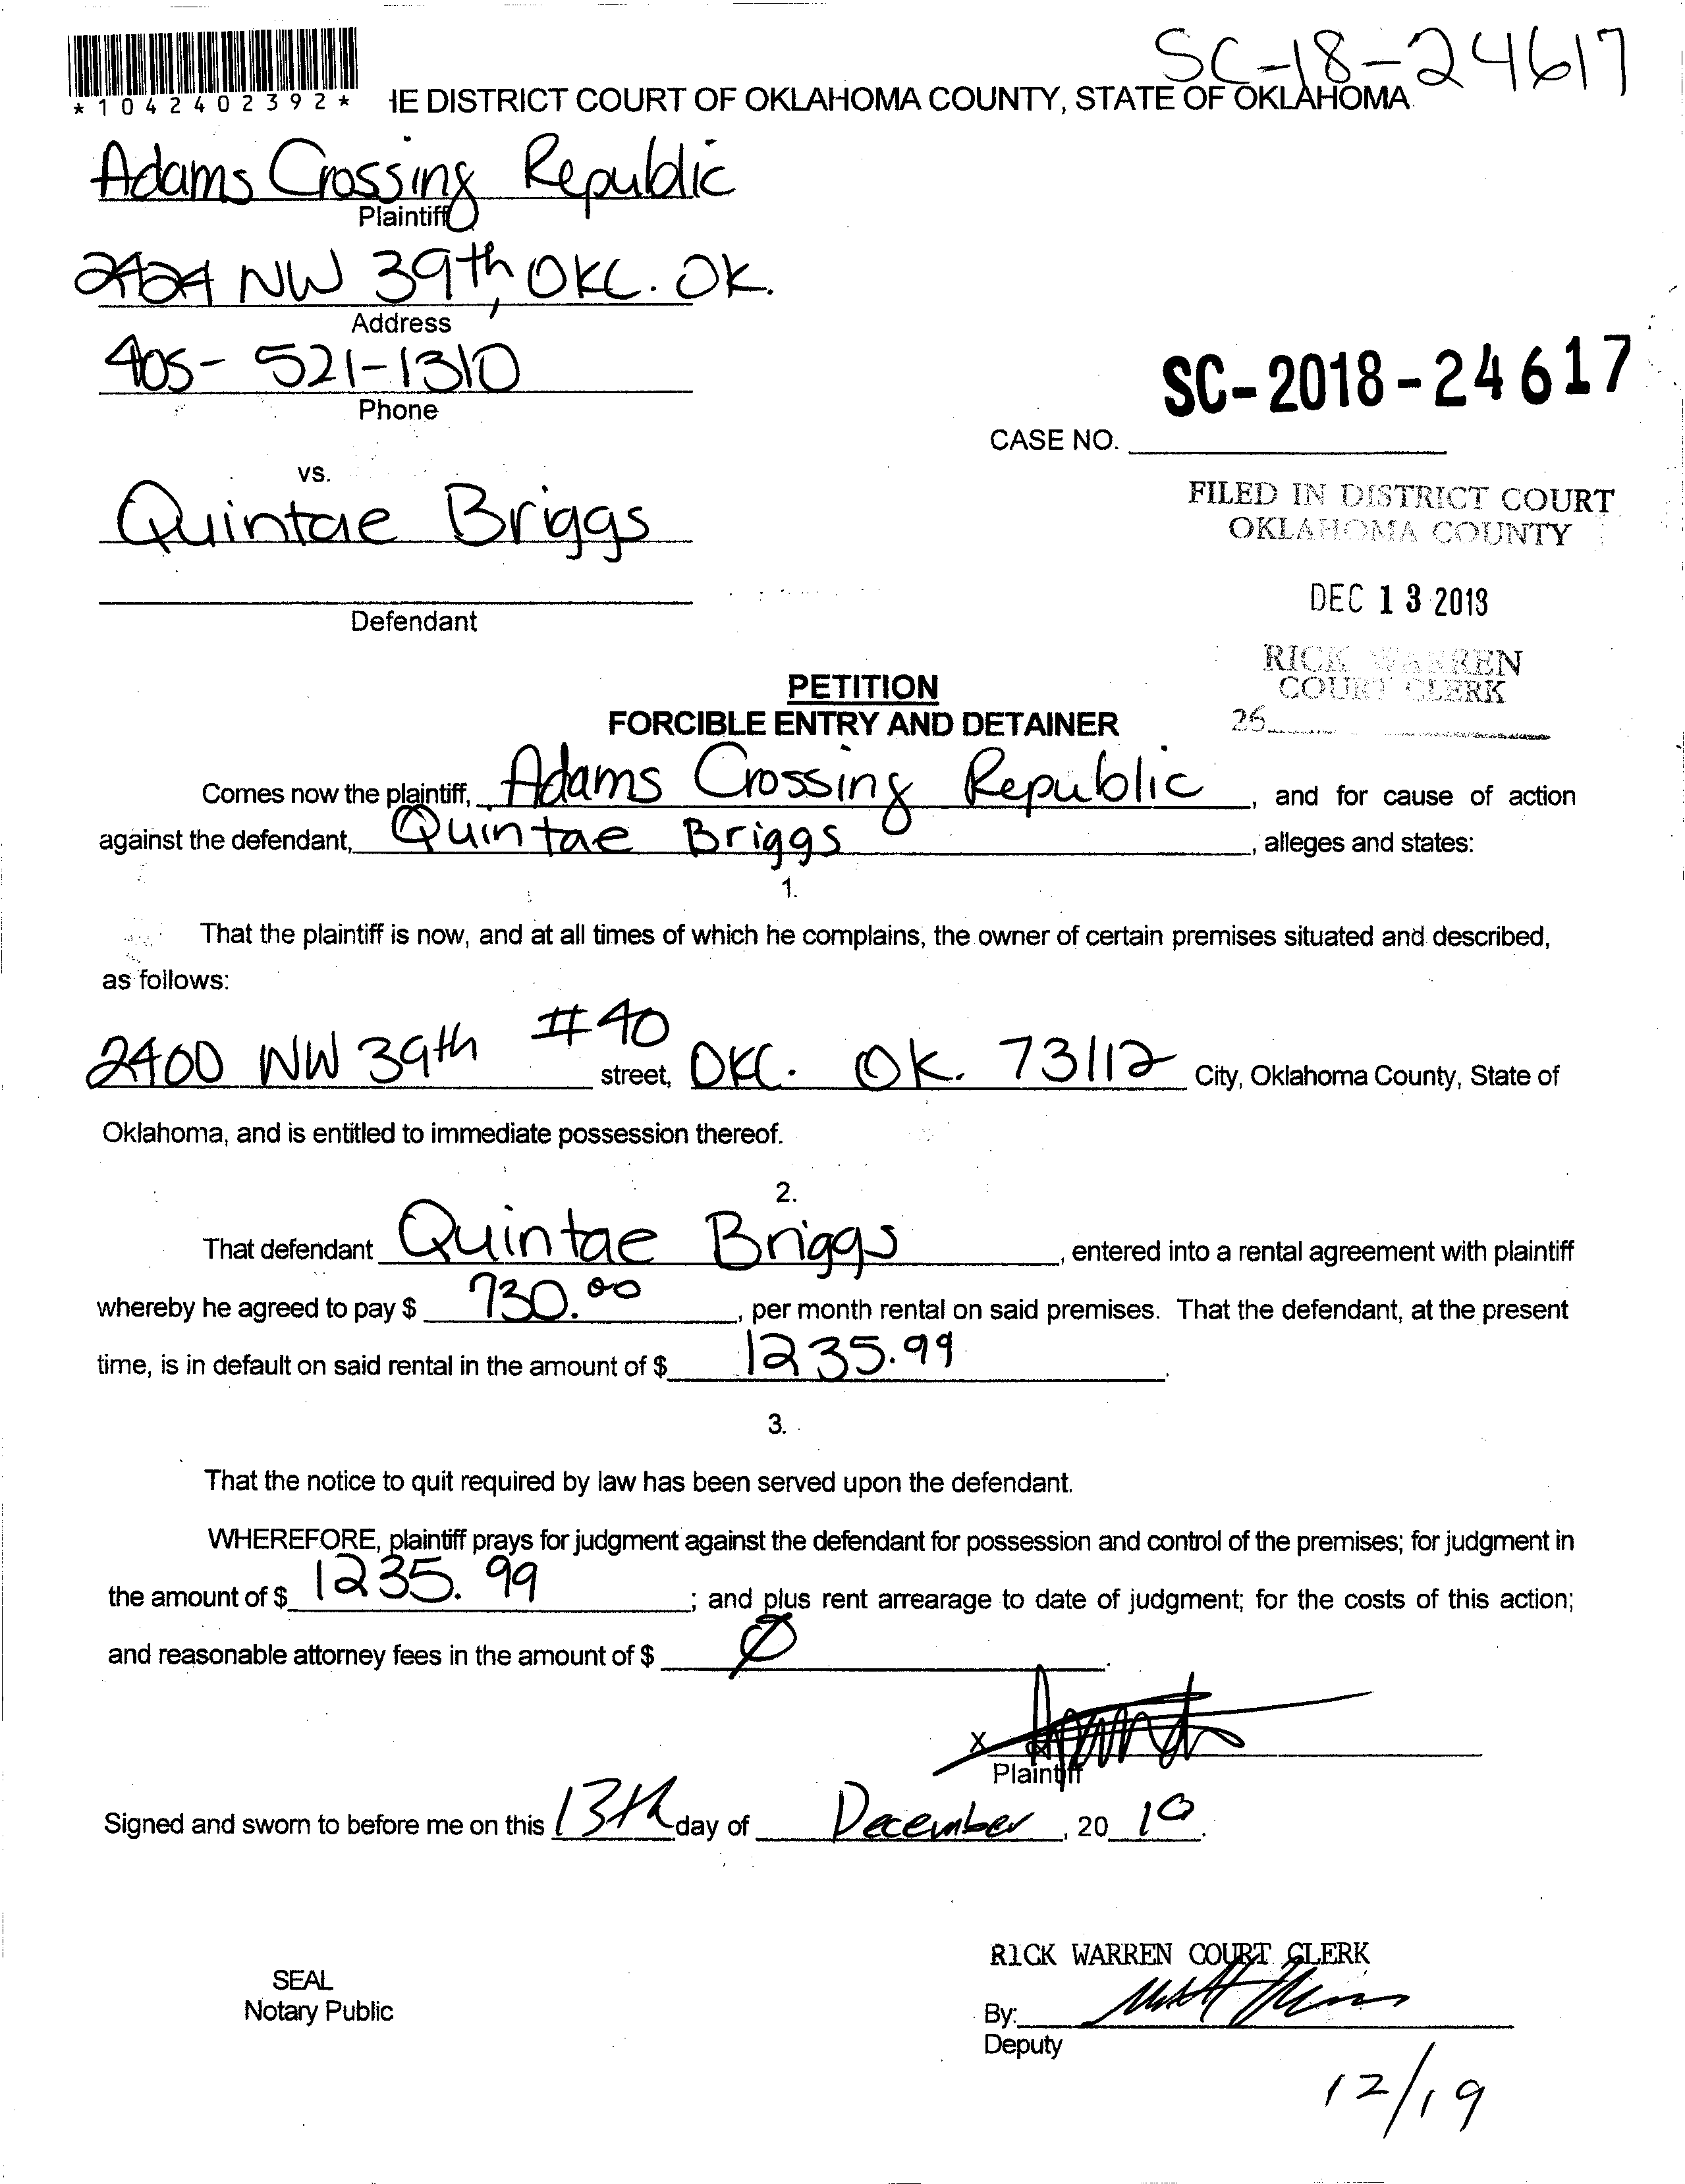 SC-18-24617
*1042402392* IE DISTRICT COURT OF OKLAHOMA COUNTY, STATE OF OKLAHOMA
Adams Crossing Republic
Plaintiff
2424 NW 39th, OKC. OK.
Address
405-521-1310
Phone
SC-2018-24617
CASE NO.
vs.
Quintae Briggs
Defendant
FILED IN DISTRICT COURT
OKLAHOMA COUNTY
DEC 13 2018
RICK WARREN
COURT CLERK
26
PETITION
FORCIBLE ENTRY AND DETAINER
Comes now the plaintiff, Adams Crossing Republic, and for cause of action
against the defendant, Quintae Briggs, alleges and states:
1.
That the plaintiff is now, and at all times of which he complains, the owner of certain premises situated and described,
as follows:
2400 NW 39th #40 street, OKC. OK. 73112 City, Oklahoma County, State of
Oklahoma, and is entitled to immediate possession thereof.
2.
That defendant Quintae Briggs, entered into a rental agreement with plaintiff
whereby he agreed to pay $ 730.00, per month rental on said premises. That the defendant, at the present
time, is in default on said rental in the amount of $ 1235.99.
3.
That the notice to quit required by law has been served upon the defendant.
WHEREFORE, plaintiff prays for judgment against the defendant for possession and control of the premises; for judgment in
the amount of $ 1235.99; and plus rent arrearage to date of judgment; for the costs of this action;
and reasonable attorney fees in the amount of $ Ø.
X
Plaintiff
Signed and sworn to before me on this 13th day of December, 20
RICK WARREN COURT CLERK
SEAL
Notary Public
By:
Deputy
12/19